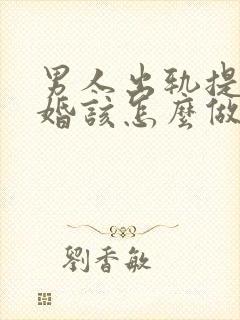 男人出轨提
婚該怎麼做
劉香敏